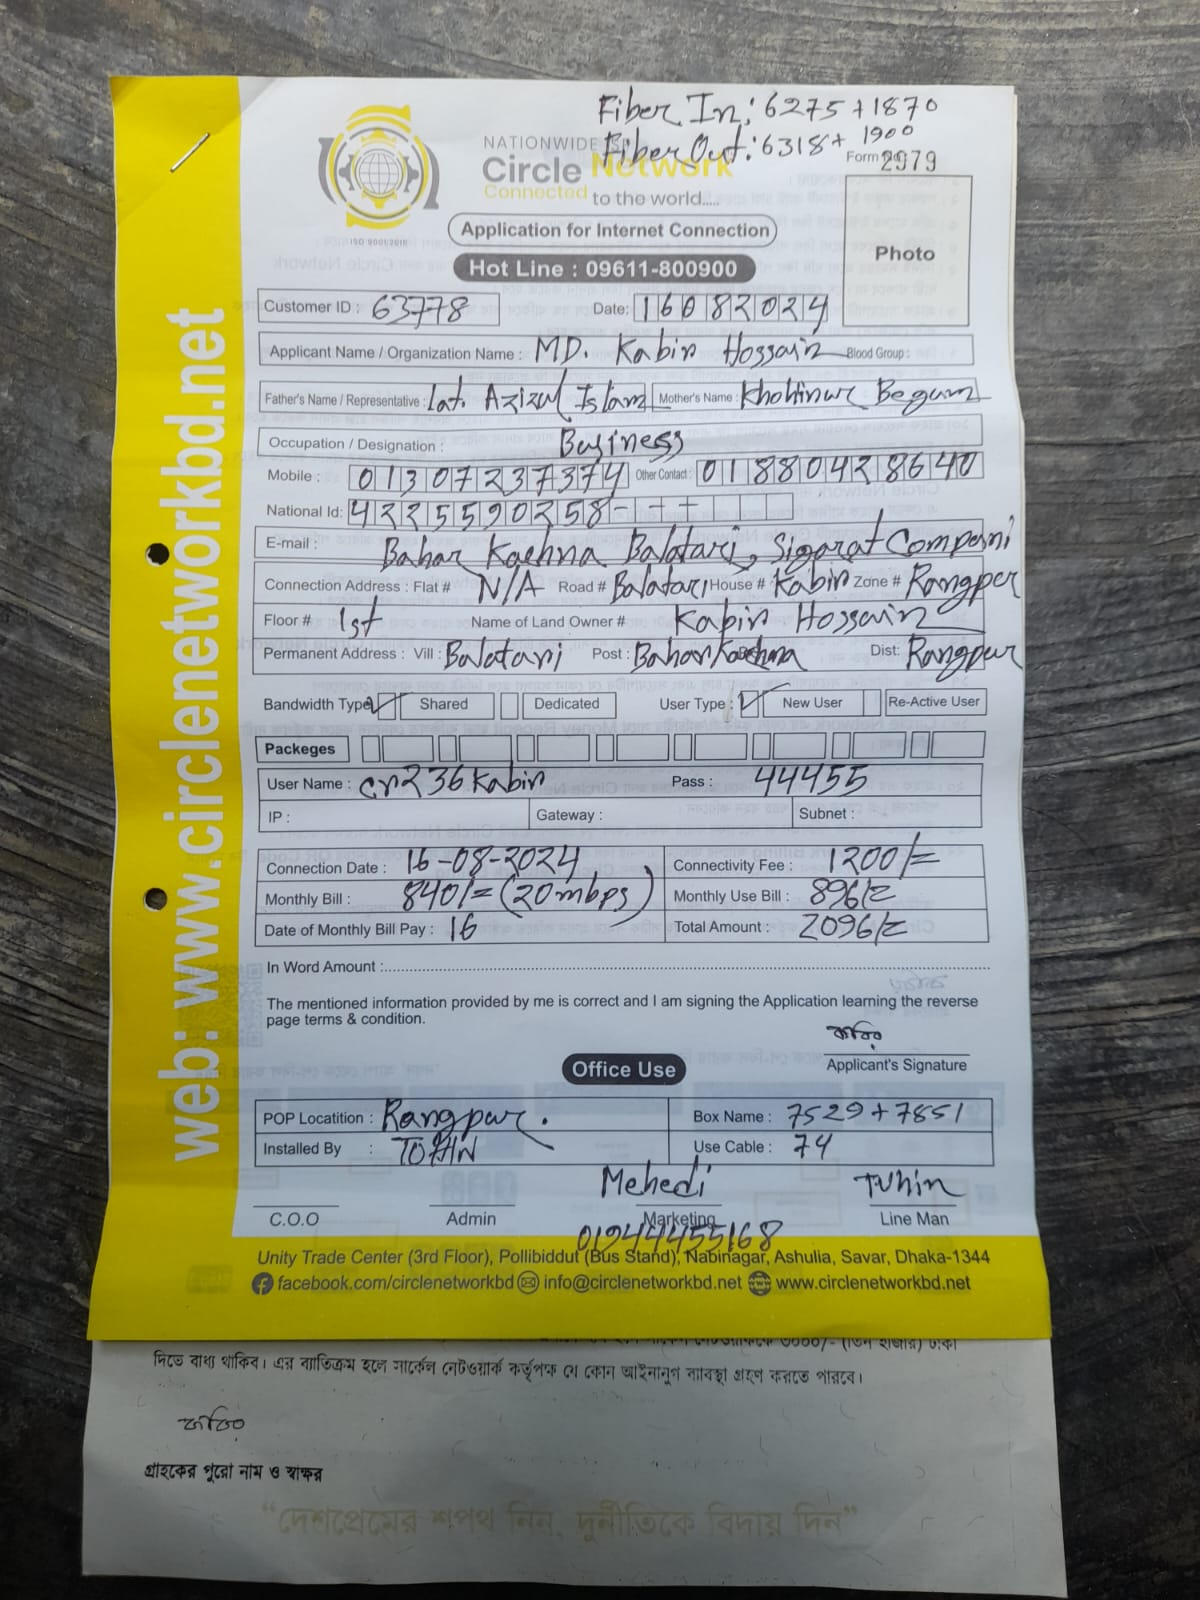 Fiber In: 6275+1870
Fiber Out: 6318+1900
NATIONWIDE ISP
Circle Network
Connected to the world.....
Form No. 2979
ISO 9001:2015
Application for Internet Connection
Hot Line : 09611-800900
Photo
Customer ID : 63778 Date: 16082024
Applicant Name / Organization Name : MD. Kabir Hossain Blood Group :
Father's Name / Representative : Lat. Azizul Islam Mother's Name : Khohinur Begum
Occupation / Designation : Business
Mobile : 01307237374 Other Contact : 01880428640
National Id: 4225590258
E-mail : Bahar Kachna Balatari, Sigarat Compani
Connection Address : Flat # N/A Road # Balatari House # Kabir Zone # Rangpur
Floor # 1st Name of Land Owner # Kabir Hossain
Permanent Address : Vill : Balatari Post : Bahar Kachna Dist: Rangpur
Bandwidth Type Shared Dedicated User Type : New User Re-Active User
Packeges
User Name : cn236kabir Pass : 44455
IP : Gateway : Subnet :
Connection Date : 16-08-2024 Connectivity Fee : 1200/=
Monthly Bill : 840/= (20 mbps) Monthly Use Bill : 896/=
Date of Monthly Bill Pay : 16 Total Amount : 2096/=
In Word Amount :
The mentioned information provided by me is correct and I am signing the Application learning the reverse
page terms & condition.
কবির
Applicant's Signature
Office Use
POP Locatition : Rangpur. Box Name : 7529+7851
Installed By : TOHIN Use Cable : 74
Mehedi Tuhin
C.O.O Admin Marketing Line Man
01944455168
Unity Trade Center (3rd Floor), Pollibiddut (Bus Stand), Nabinagar, Ashulia, Savar, Dhaka-1344
facebook.com/circlenetworkbd info@circlenetworkbd.net www.circlenetworkbd.net
web: www.circlenetworkbd.net
দিতে বাধ্য থাকিব। এর ব্যাতিক্রম হলে সার্কেল নেটওয়ার্ক কর্তৃপক্ষ যে কোন আইনানুগ ব্যাবস্থা গ্রহণ করতে পারবে।
কবির
গ্রাহকের পুরো নাম ও স্বাক্ষর
“দেশপ্রেমের শপথ নিন, দুর্নীতিকে বিদায় দিন”